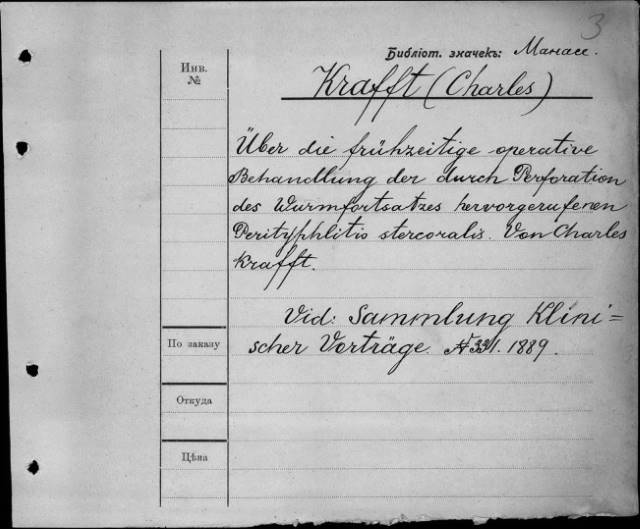 3
Библіот. значекъ: Манасс.
Инв.
№
Krafft (Charles)
Über die frühzeitige operative
Behandlung der durch Perforation
des Wurmfortsatzes hervorgerufenen
Perityphlitis stercoralis. Von Charles
Krafft.
Vid: Sammlung Klini=
scher Vorträge. № 331. 1889.
По заказу
Откуда
Цѣна